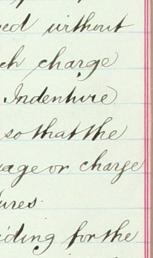 ed without
ch charge
Indenture)
so that the
gage or charge
ures.
iding for the